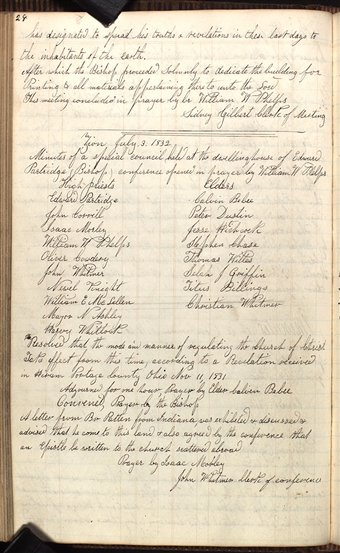 28
has designated to spread his truths & revelations in these last days to
the inhabitants of the earth.
After which the Bishop proceeded Solemnly to dedicate the building for
Printing & all materials appertaining thereto unto the Lord
This meeting concluded in prayer by br William W Phelps
Sidney Gilbert Clerk of Meeting
Zion July. 3. 1832
Minutes of a special council held at the dwelling house of Edward
Partridge (Bishop) conference opened in prayer by William W Phelps
High priests Elders
Edward Partridge Calvin Bebee
John Corrill Peter Dustin
Isaac Morley Jesse Hitchcock
William W Phelps Stephen Chase
Oliver Cowdery Thomas
John Whitmer Selah J Griffin
Newel Knight Titus Billings
William E McLellen Christian Whitmer
Major N Ashley
Harvey Whitlock
Resolved that the mode and manner of regulating the Church of Christ
Take effect from this time, according to a Revelation received
in Hiram Portage County Ohio Nov 11, 1831.
Adjourned for one hour, Prayer by Elder Calvin Bebee
Convened, Prayer by the Bishop
A letter from Bro Patten from Indiana, was exhibited & discussed &
advised that he come to this land & also agreed by the conference that
an Epistle be written to the church scattered abroad
Prayer by Isaac Morley
John Whitmer clerk of conference